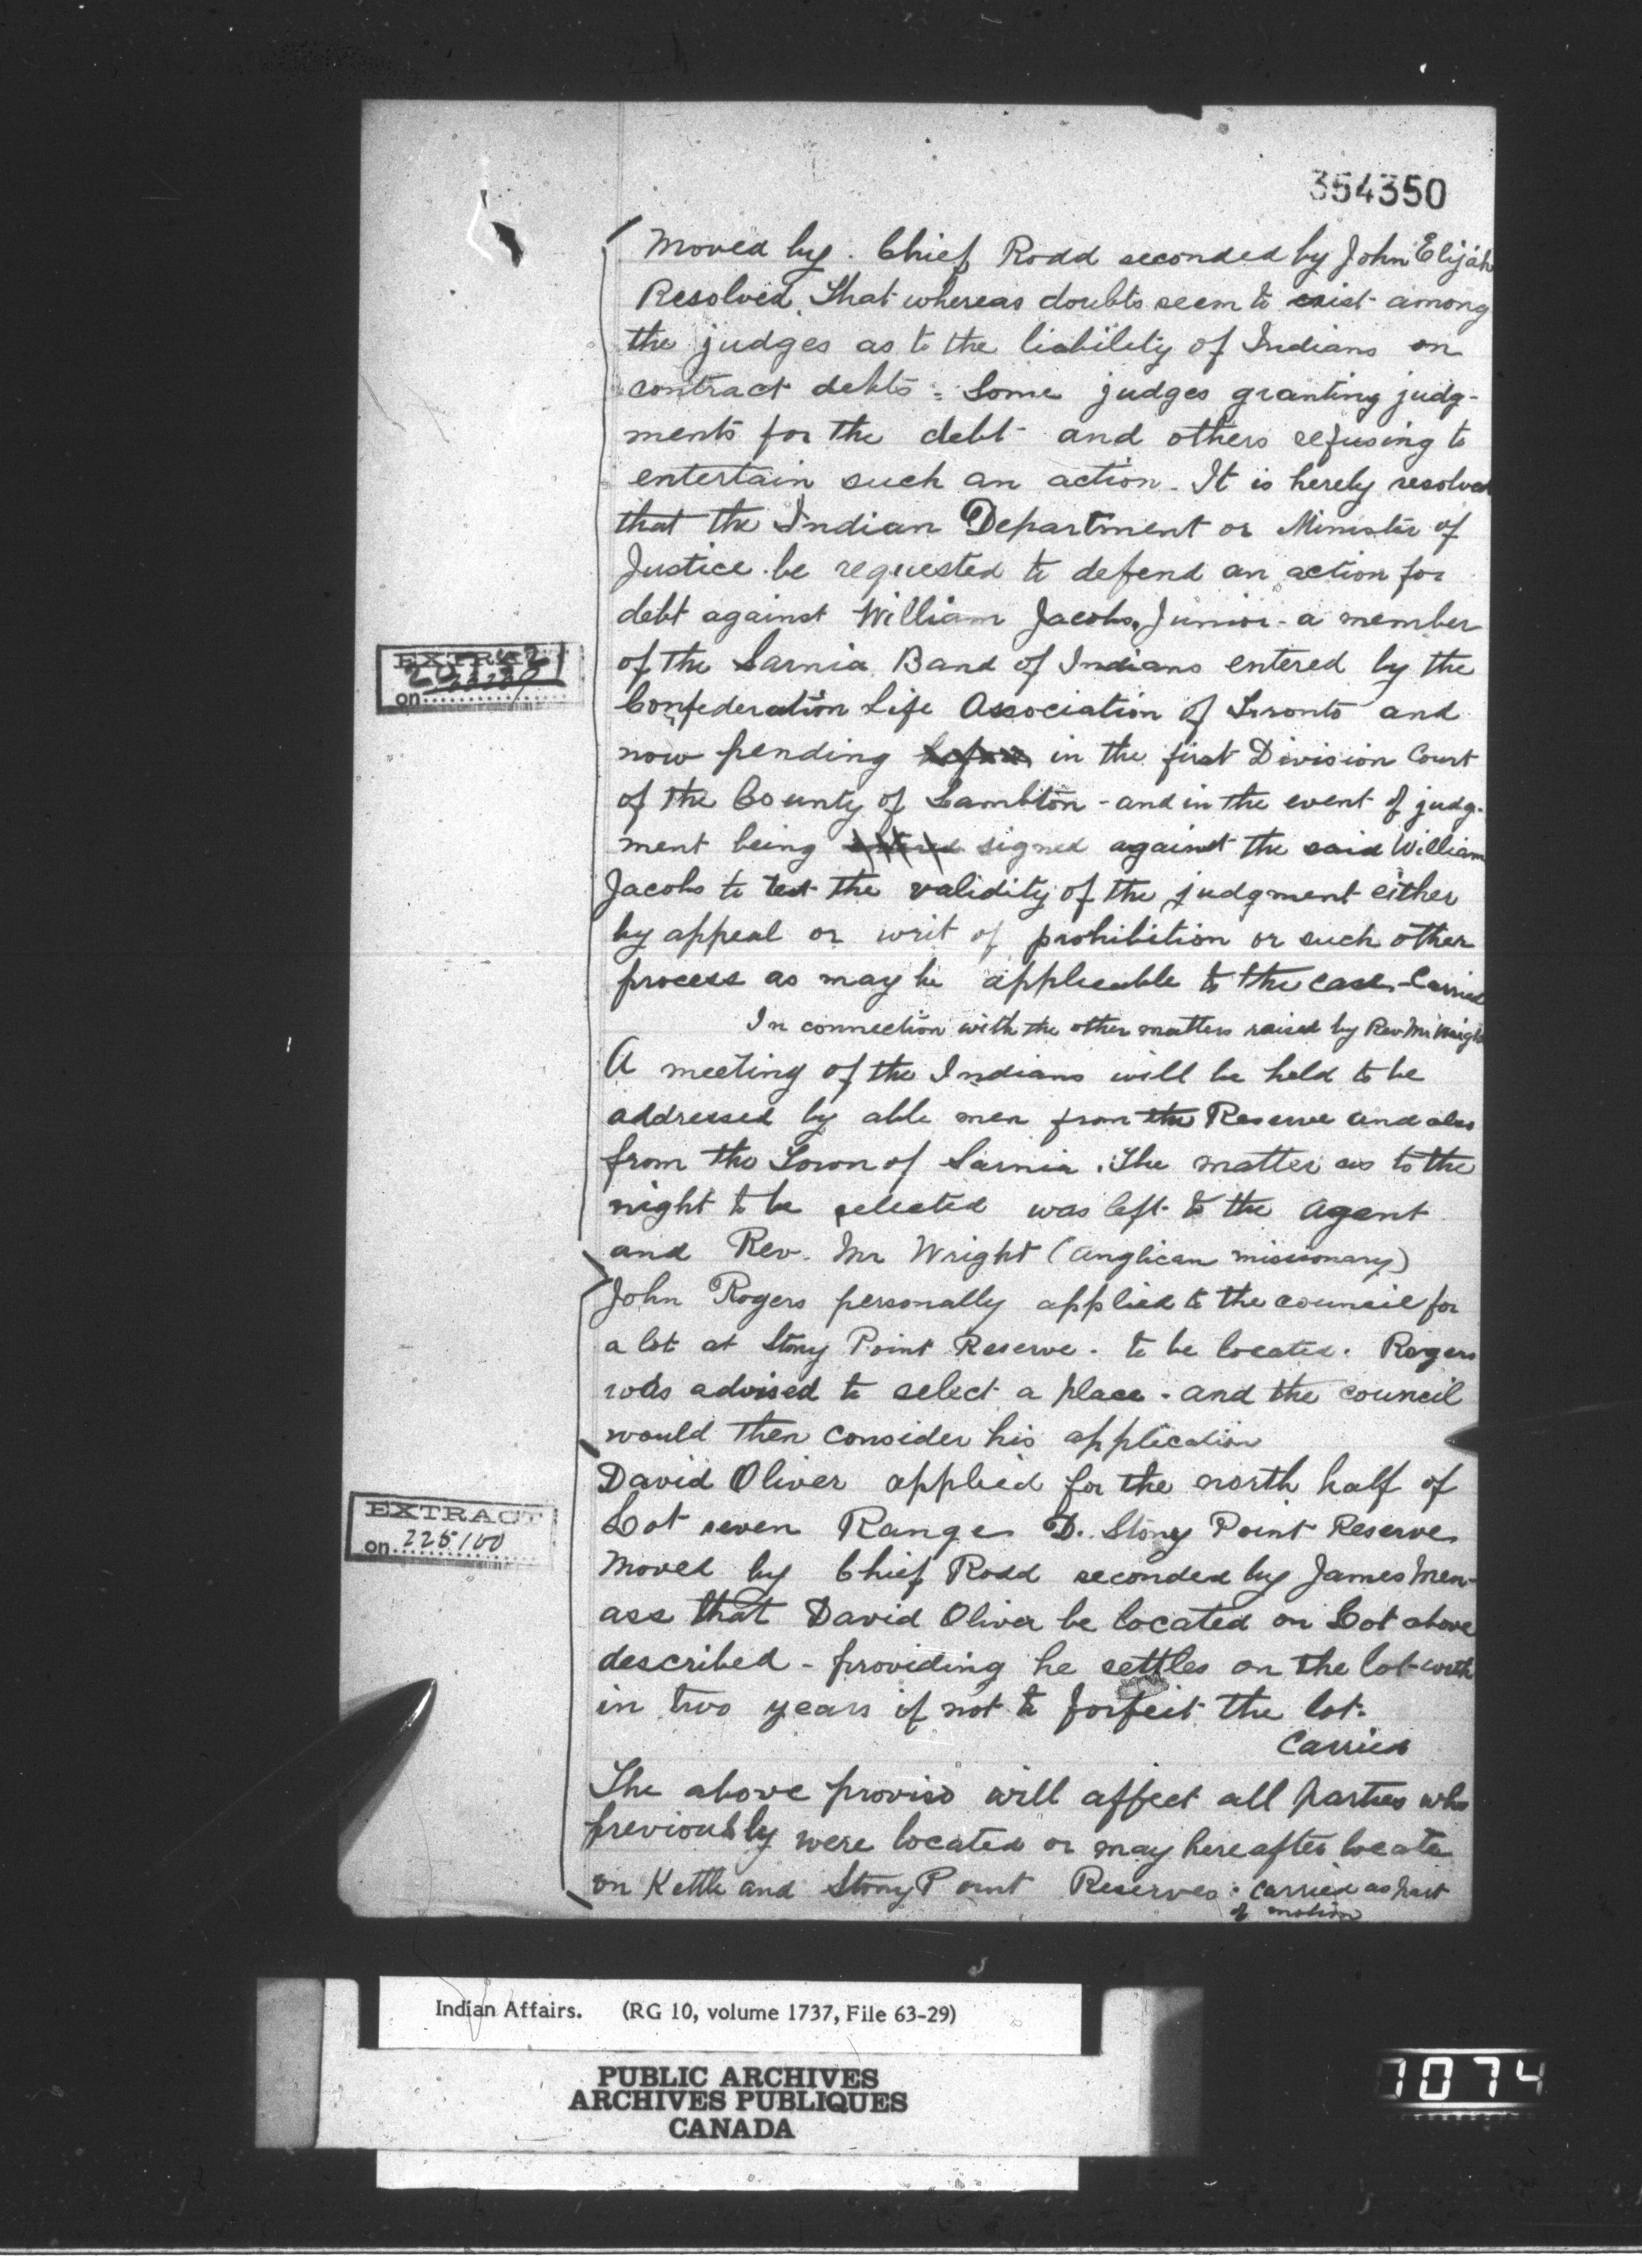 354350
Moved by Chief Rodd seconded by John Elijah
Resolved, That whereas doubts seem to exist among
the judges as to the liability of Indians on
contract debts - Some judges granting judg-
ments for the debt - and others refusing to
entertain such an action. It is hereby resolved
that the Indian Department or Minister of
Justice be requested to defend an action for
debt against William Jacobs, Junior - a member
of the Sarnia Band of Indians entered by the
Confederation Life Association of Toronto and
now pending before in the first Division Court
of the County of Lambton - and in the event of judg-
ment being entered signed against the said William
Jacobs to test the validity of the judgment either
by appeal or writ of prohibition or such other
process as may be applicable to the case. - Carried
In connection with the other matters raised by Rev Mr Wright
A meeting of the Indians will be held to be
addressed by able men from the Reserve and also
from the Town of Sarnia. The matter as to the
night to be selected was left to the agent
and Rev. Mr Wright (Anglican missionary)
John Rogers personally applied to the council for
a lot at Stony Point Reserve - to be located. Rogers
was advised to select a place - and the council
would then consider his application
David Oliver applied for the north half of
Lot seven Range D. Stony Point Reserve
Moved by Chief Rodd seconded by James Men-
ass that David Oliver be located on Lot above
described - providing he settles on the lot with
in two years if not to forfeit the lot.
Carried
The above proviso will affect all parties who
previously were located or may hereafter locate
on Kettle and Stony Point Reserves - carried as part
of motion
EXTRACT
on
EXTRACT
on 225100
Indian Affairs. (RG 10, volume 1737, File 63-29)
PUBLIC ARCHIVES
ARCHIVES PUBLIQUES
CANADA
7074